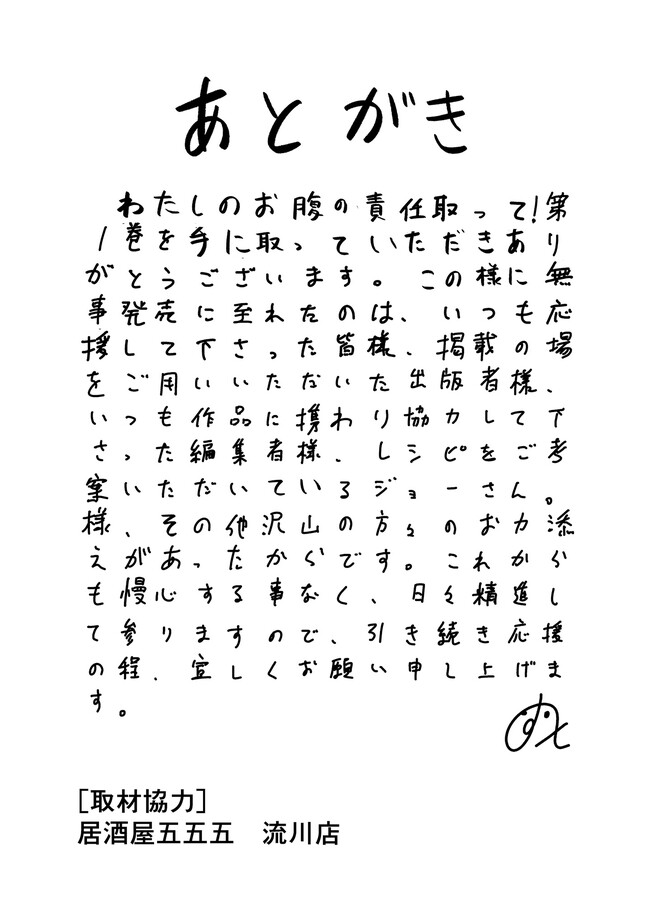 あとがき
わたしのお腹の責任取って!第
1巻を手に取っていただきあり
がとうございます。この様に無
事発売に至れたのは、いつも応
援して下さった皆様、掲載の場
をご用いいただいた出版者様、
いつも作品に携わり協力して下
さった編集者様、レシピをご考
案いただいているジョーさん。
様、その他沢山の方々のお力添
えがあったからです。これから
も慢心する事なく、日々精進し
て参りますので、引き続き応援
の程、宜しくお願い申し上げま
す。
[取材協力]
居酒屋五五五 流川店